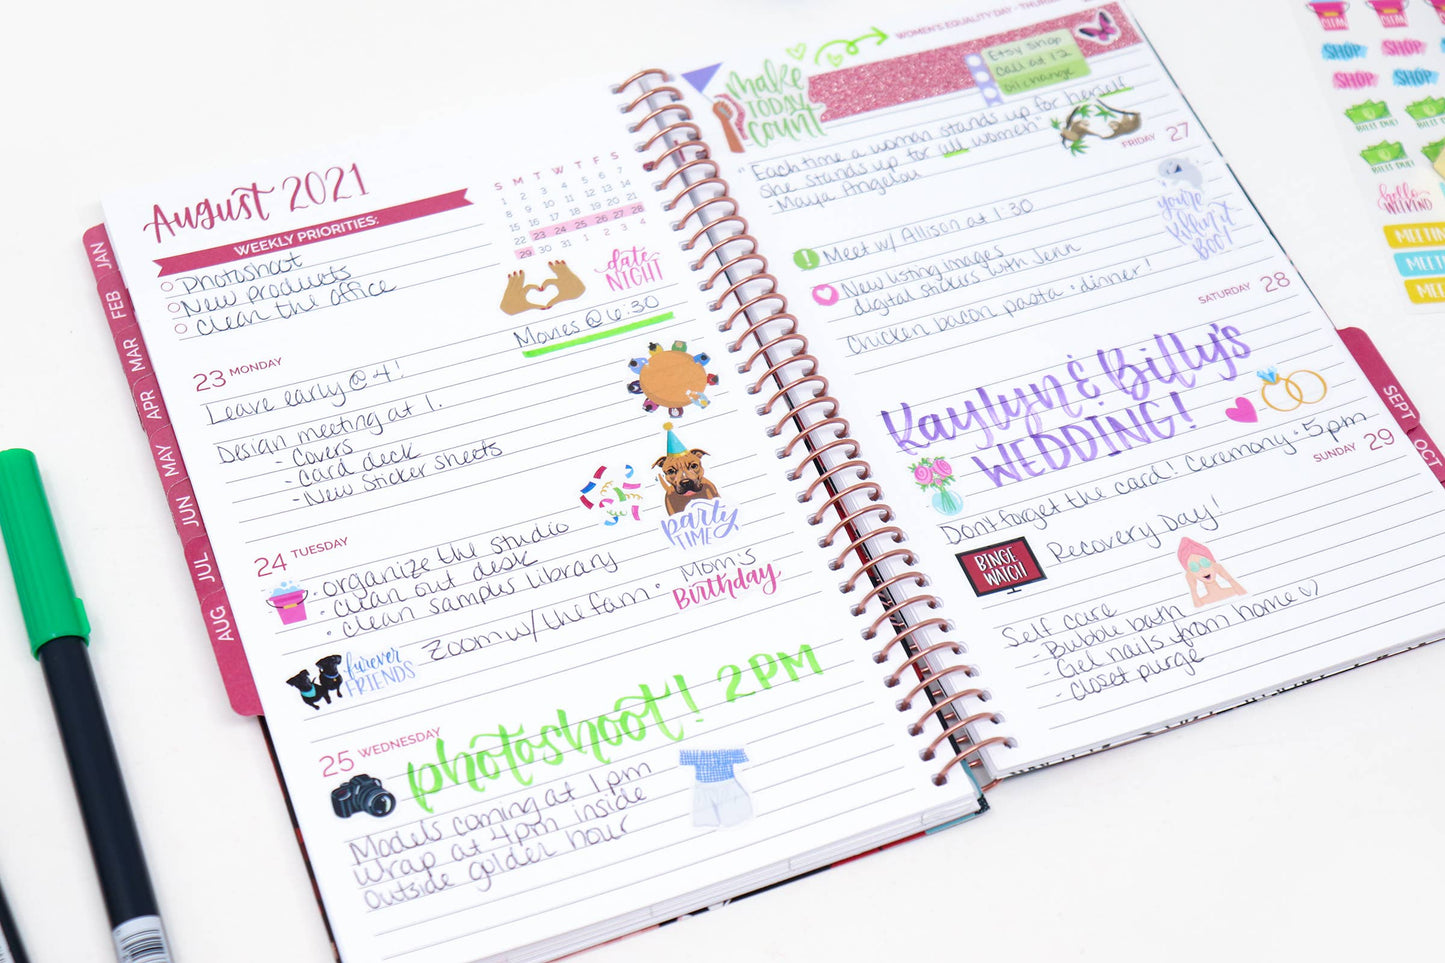 August 2021
WEEKLY PRIORITIES:
Photoshoot
New products
Clean the office
S M T W T F S
1 2 3 4 5 6 7
8 9 10 11 12 13 14
15 16 17 18 19 20 21
22 23 24 25 26 27 28
29 30 31 1 2 3 4
date
NIGHT
Movies @ 6:30
23 MONDAY
Leave early @ 4!
Design meeting at 1.
- Covers
- Card deck
- New Sticker sheets
party
TIME
24 TUESDAY
• organize the studio
• clean out desk
• clean samples library
Zoom w/ the fam •
Mom's
Birthday
furever
FRIENDS
25 WEDNESDAY
photoshoot! 2PM
Models coming at 1pm
Wrap at 4pm inside
Outside golden hour
JAN
FEB
MAR
APR
MAY
JUN
JUL
AUG
WOMEN'S EQUALITY DAY - THURS
make
TODAY
count
Etsy shop
call at 12
Oil change
"Each time a woman stands up for herself
she stands up for all women"
- Maya Angelou
FRIDAY 27
Meet w/ Allison at 1:30
New listing images
digital stickers with Jenn
Chicken bacon pasta • dinner!
you're
Killin' it
BOO!
SATURDAY 28
Kaylyn & Billy's
WEDDING!
Don't forget the card! Ceremony • 5pm
SUNDAY 29
BINGE
WATCH
Recovery Day!
Self care
- Bubble bath
- Gel nails from home
- Closet purge
SEPT
OCT
CLEAN
CLEAN
SHOP
SHOP
SHOP
SHOP
BILLS DUE!
BILLS DUE!
hello
WEEKEND
MEETIN
MEET
MEE